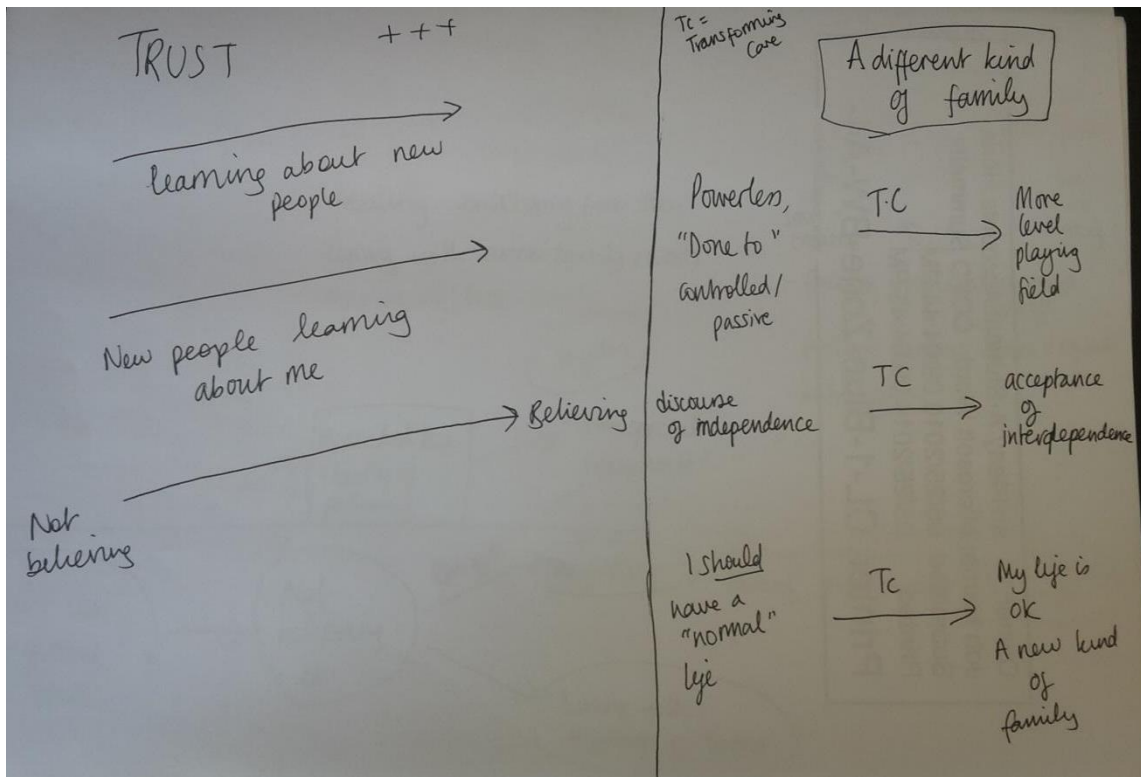 TRUST +++
learning about new
people
New people learning
about me
Believing
Not
believing
Tc =
Transforming
Care
A different kind
of family
Powerless,
"Done to"
controlled/
passive
T.C
More
level
playing
field
discourse
of independence
TC
acceptance
of
interdependence
I should
have a
"normal"
life
Tc
My life is
OK
A new kind
of
family